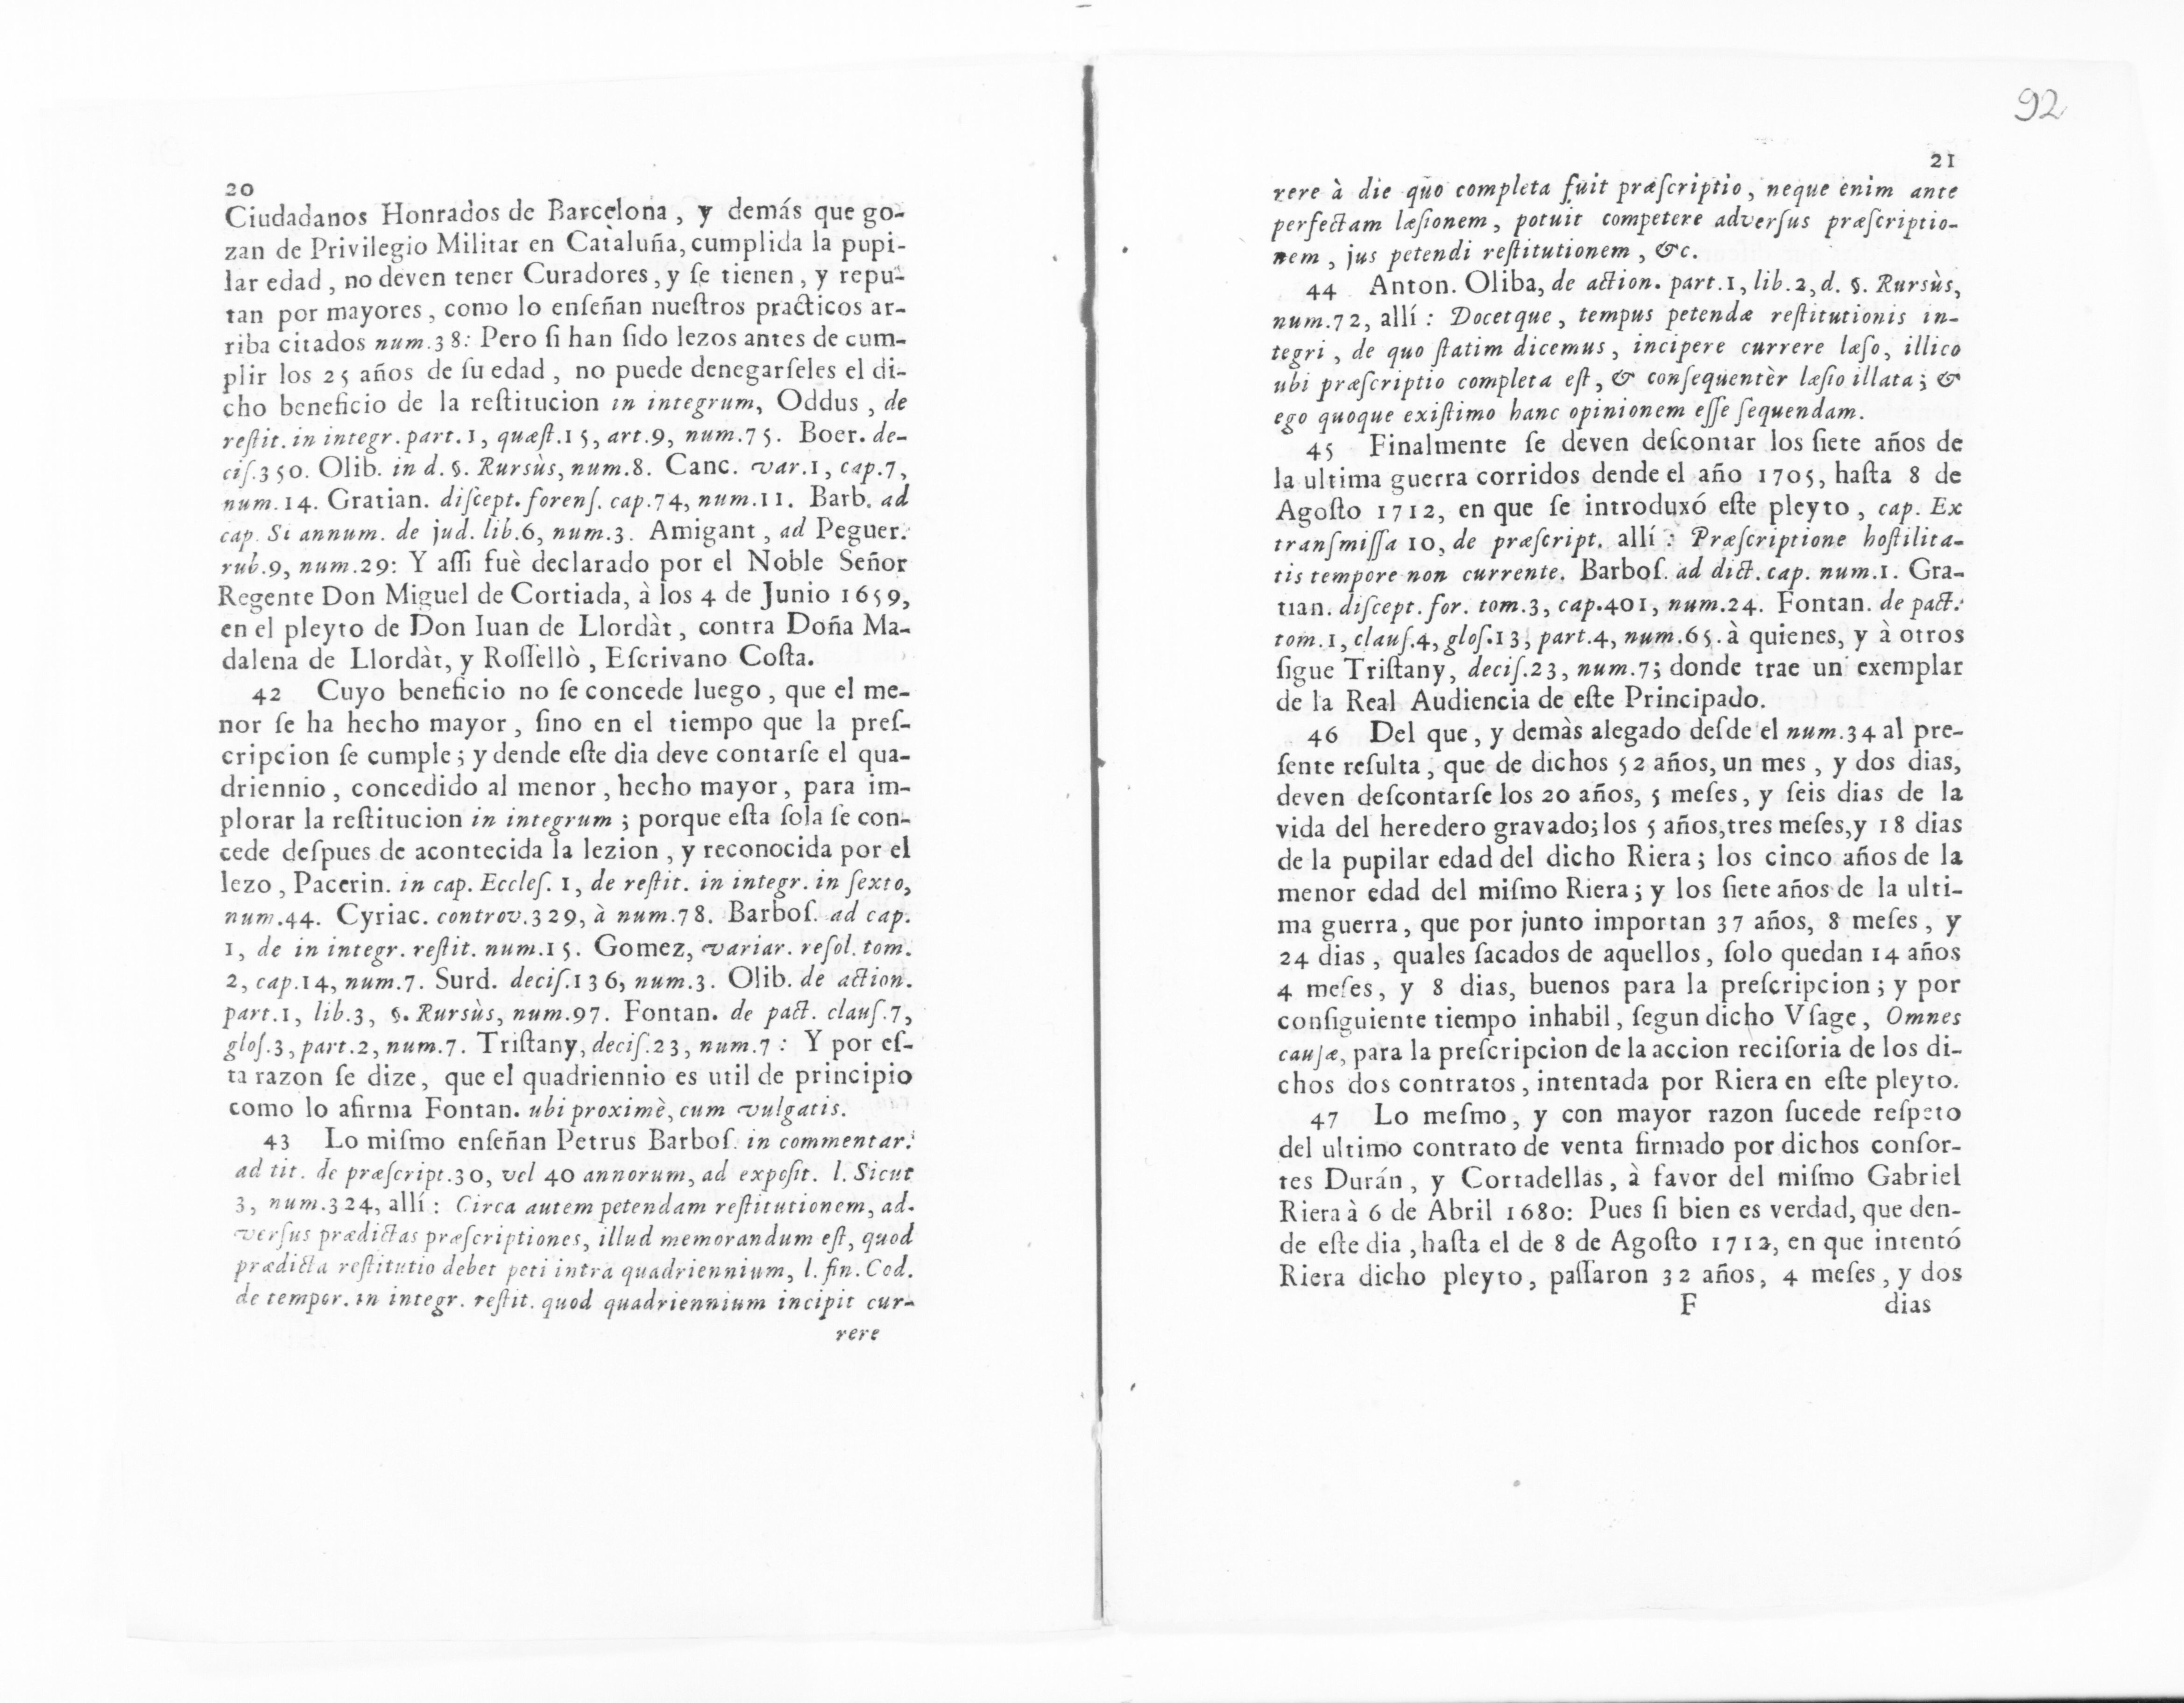 20
Ciudadanos Honrados de Barcelona, y demás que go-
zan de Privilegio Militar en Cataluña, cumplida la pupi-
lar edad, no deven tener Curadores, y ſe tienen, y repu-
tan por mayores, como lo enſeñan nueſtros practicos ar-
riba citados num.38: Pero ſi han ſido lezos antes de cum-
plir los 25 años de ſu edad, no puede denegarſeles el di-
cho beneficio de la reſtitucion in integrum, Oddus, de
reſtit. in integr. part.1, quæſt.15, art.9, num.75. Boer. de-
ciſ.350. Olib. in d. §. Rursùs, num.8. Canc. var.1, cap.7,
num.14. Gratian. diſcept. forenſ. cap.74, num.11. Barb. ad
cap. Si annum. de jud. lib.6, num.3. Amigant, ad Peguer.
rub.9, num.29: Y aſſi fuè declarado por el Noble Señor
Regente Don Miguel de Cortiada, à los 4 de Junio 1659,
en el pleyto de Don Iuan de Llordàt, contra Doña Ma-
dalena de Llordàt, y Roſſellò, Eſcrivano Coſta.
42 Cuyo beneficio no ſe concede luego, que el me-
nor ſe ha hecho mayor, ſino en el tiempo que la preſ-
cripcion ſe cumple; y dende eſte dia deve contarſe el qua-
driennio, concedido al menor, hecho mayor, para im-
plorar la reſtitucion in integrum; porque eſta ſola ſe con-
cede deſpues de acontecida la lezion, y reconocida por el
lezo, Pacerin. in cap. Eccleſ. 1, de reſtit. in integr. in ſexto,
num.44. Cyriac. controv.329, à num.78. Barboſ. ad cap.
1, de in integr. reſtit. num.15. Gomez, variar. reſol. tom.
2, cap.14, num.7. Surd. deciſ.136, num.3. Olib. de action.
part.1, lib.3, §. Rursùs, num.97. Fontan. de pact. clauſ.7,
gloſ.3, part.2, num.7. Triſtany, deciſ.23, num.7: Y por eſ-
ta razon ſe dize, que el quadriennio es util de principio
como lo afirma Fontan. ubi proximè, cum vulgatis.
43 Lo miſmo enſeñan Petrus Barboſ. in commentar.
ad tit. de præſcript.30, vel 40 annorum, ad expoſit. l. Sicut
3, num.324, allí: Circa autem petendam reſtitutionem, ad-
verſus prædictas præſcriptiones, illud memorandum eſt, quod
prædicta reſtitutio debet peti intra quadriennium, l. fin. Cod.
de tempor. in integr. reſtit. quod quadriennium incipit cur-
rere
92
21
rere à die quo completa fuit præſcriptio, neque enim ante
perfectam læſionem, potuit competere adverſus præſcriptio-
nem, jus petendi reſtitutionem, &c.
44 Anton. Oliba, de action. part.1, lib.2, d. §. Rursùs,
num.72, allí: Docetque, tempus petendæ reſtitutionis in-
tegri, de quo ſtatim dicemus, incipere currere læſo, illico
ubi præſcriptio completa eſt, & conſequentèr læſio illata; &
ego quoque exiſtimo hanc opinionem eſſe ſequendam.
45 Finalmente ſe deven deſcontar los ſiete años de
la ultima guerra corridos dende el año 1705, haſta 8 de
Agoſto 1712, en que ſe introduxó eſte pleyto, cap. Ex
tranſmiſſa 10, de præſcript. allí: Præſcriptione hoſtilita-
tis tempore non currente. Barboſ. ad dict. cap. num.1. Gra-
tian. diſcept. for. tom.3, cap.401, num.24. Fontan. de pact.
tom.1, clauſ.4, gloſ.13, part.4, num.65. à quienes, y à otros
ſigue Triſtany, deciſ.23, num.7; donde trae un exemplar
de la Real Audiencia de eſte Principado.
46 Del que, y demàs alegado deſde el num.34 al pre-
ſente reſulta, que de dichos 52 años, un mes, y dos dias,
deven deſcontarſe los 20 años, 5 meſes, y ſeis dias de la
vida del heredero gravado; los 5 años, tres meſes, y 18 dias
de la pupilar edad del dicho Riera; los cinco años de la
menor edad del miſmo Riera; y los ſiete años de la ulti-
ma guerra, que por junto importan 37 años, 8 meſes, y
24 dias, quales ſacados de aquellos, ſolo quedan 14 años
4 meſes, y 8 dias, buenos para la preſcripcion; y por
conſiguiente tiempo inhabil, ſegun dicho Vſage, Omnes
cauſæ, para la preſcripcion de la accion reciſoria de los di-
chos dos contratos, intentada por Riera en eſte pleyto.
47 Lo meſmo, y con mayor razon ſucede reſpeto
del ultimo contrato de venta firmado por dichos conſor-
tes Durán, y Cortadellas, à favor del miſmo Gabriel
Riera à 6 de Abril 1680: Pues ſi bien es verdad, que den-
de eſte dia, haſta el de 8 de Agoſto 1712, en que intentó
Riera dicho pleyto, paſſaron 32 años, 4 meſes, y dos
F dias